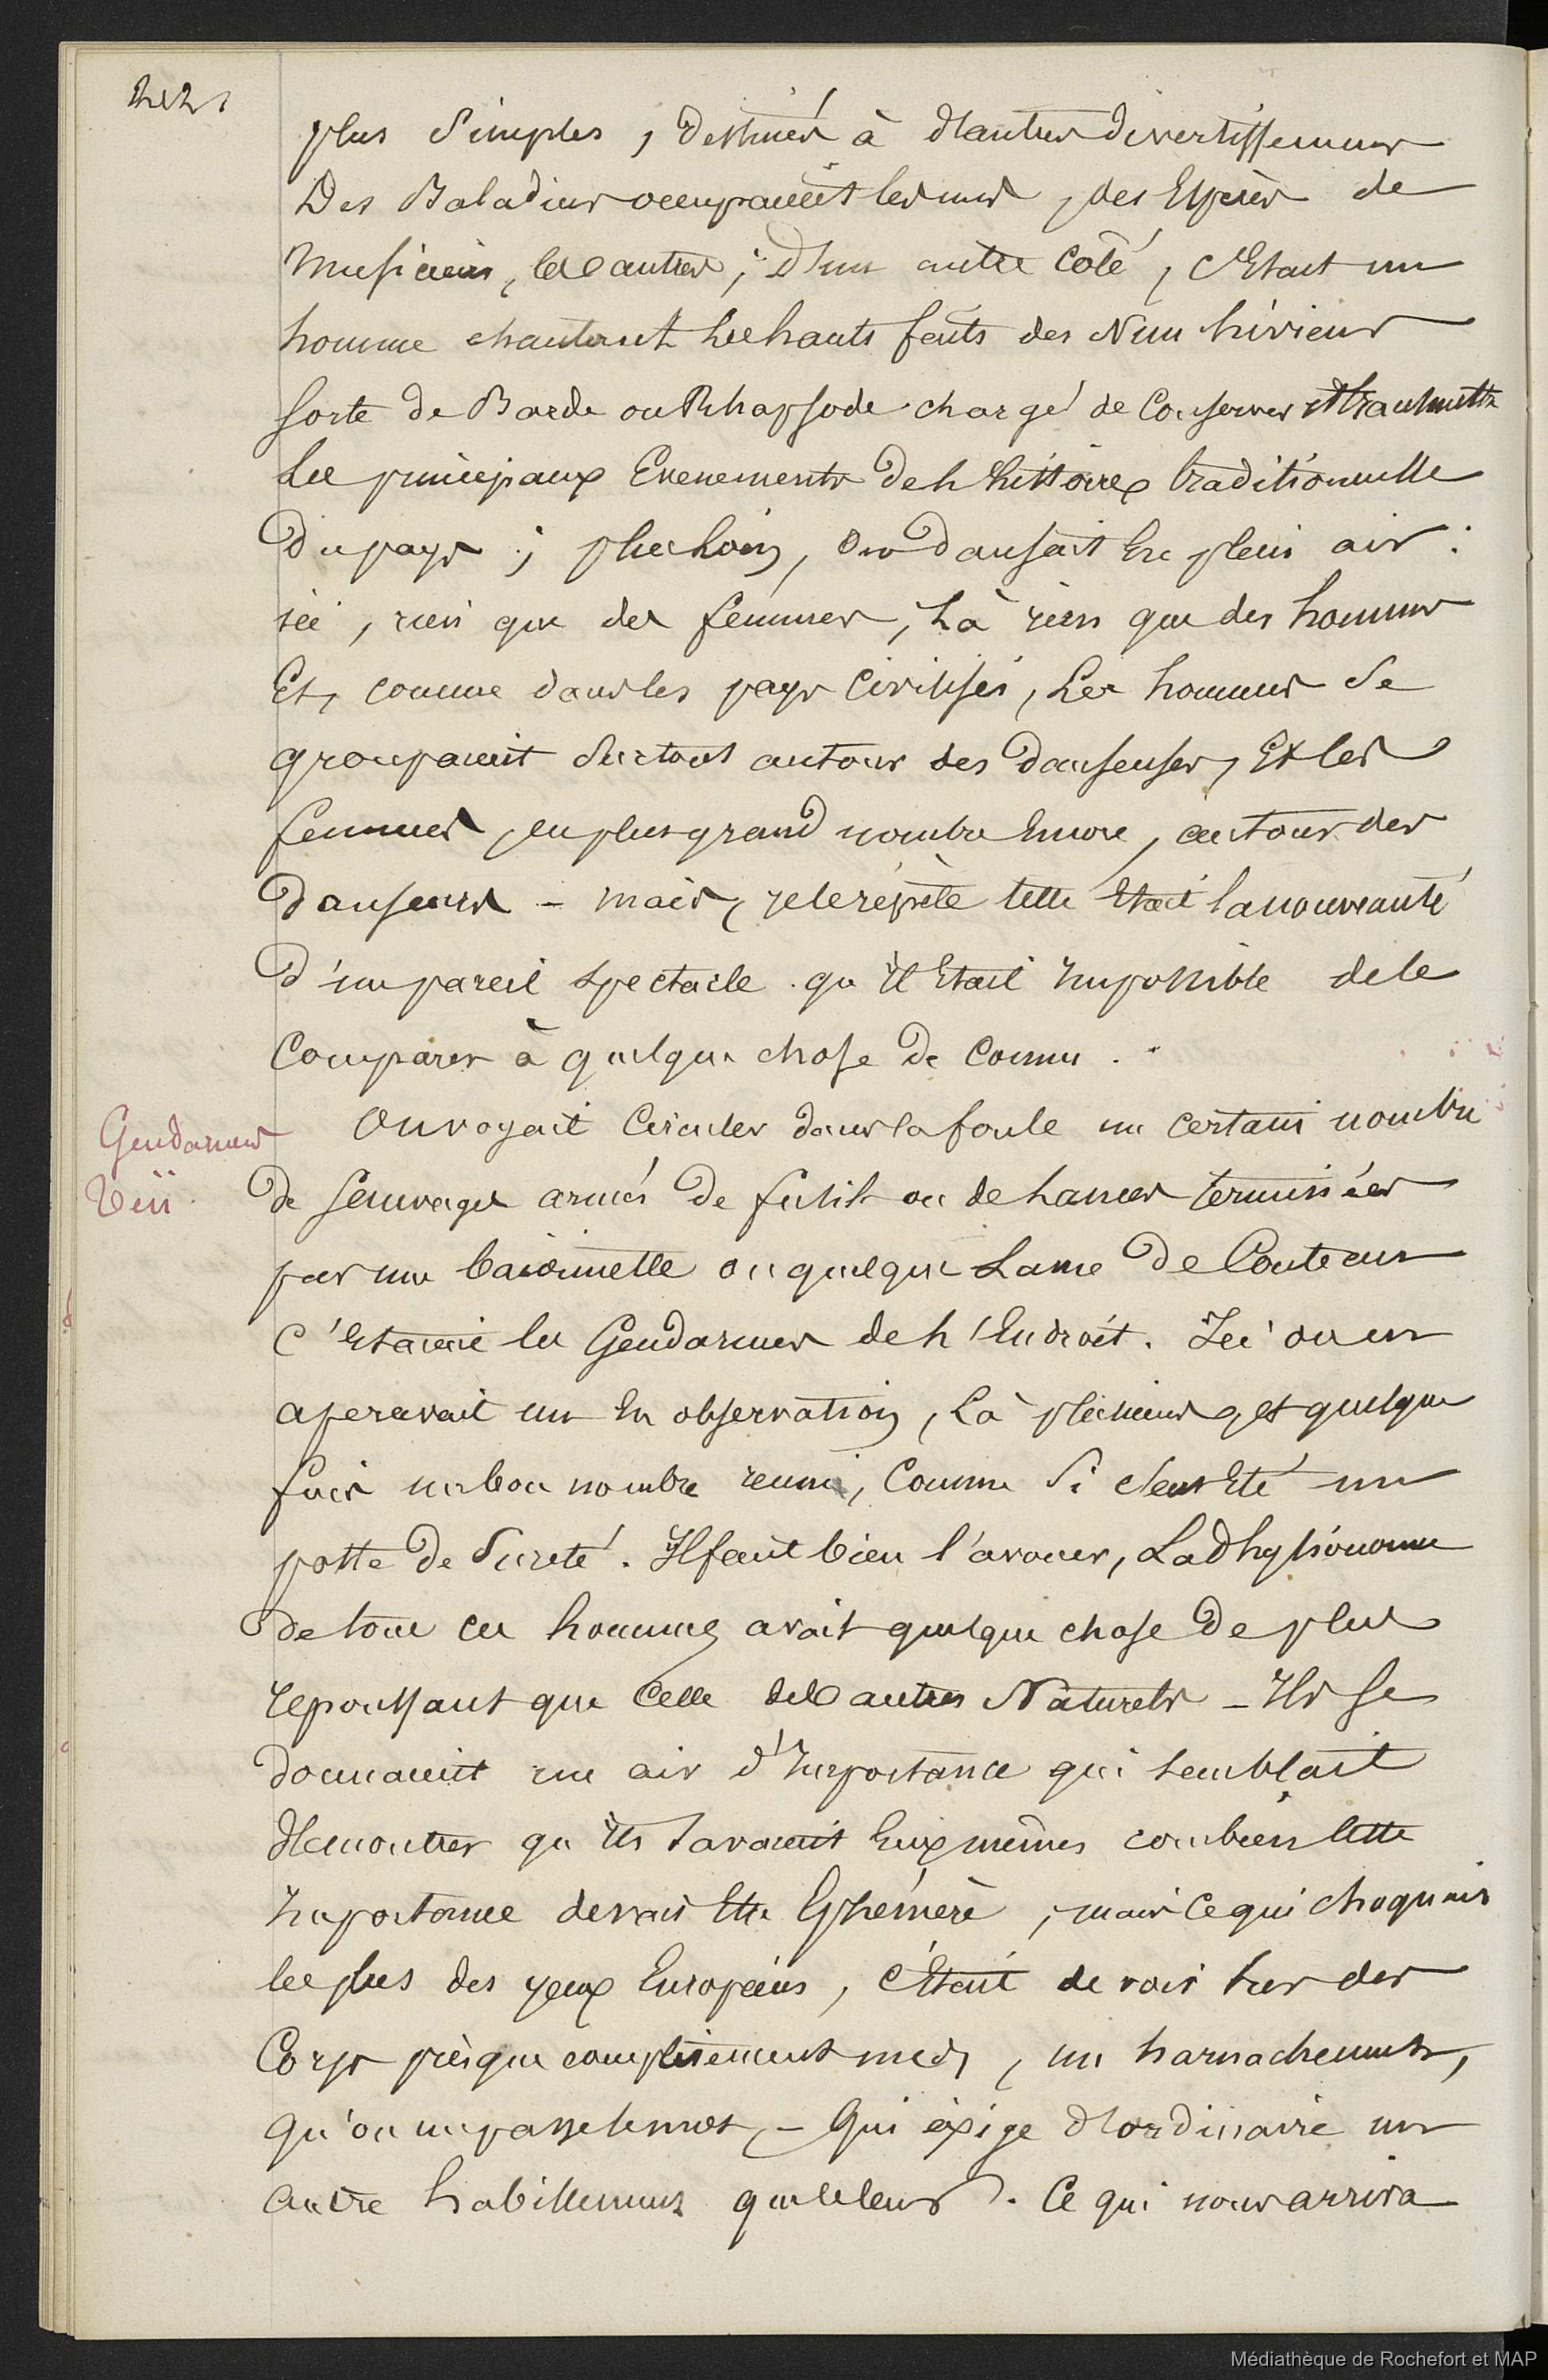 plus simples, destinés à d'autres divertissemens
Des Baladins occupaient les uns, des Espèces de
musiciens, les autres ; D'un autre Côté, c'Etait un
homme chantant les hauts faits des Nuu hiviens
sorte de Barde ou Rhapsode chargé de Conserver et transmettre
Les principaux Evenements de l'histoire traditionnelle
Du pays ; plus loin, on dansait En plein air :
ici, rien que des femmes, Là rien que des hommes
Et, comme dans les pays Civilisés, Les hommes se
groupaient surtout autour des Danseuses, Et les
femmes, en plus grand nombre Encore, autour des
Danseurs - mais, je le répète telle Etait la nouveauté
D'un pareil spectacle qu'il Etait Impossible de le
Comparer à quelque chose de Connu.
Gendarmes
Teii
On voyait Circuler dans la foule un certain nombre
de sauvages armés de fusils ou de lances terminées
par une baïonnette ou quelque Lame de Couteau
C'Etaient les Gendarmes de l'Endroit. Ici on en
apercevait un En observation, Là plusieurs, et quelque
fois un bon nombre reuni, Comme si c'eut Eté un
poste de Sureté. Il faut bien l'avouer, La Physionomie
de tous ces hommes avait quelque chose de plus
repoussant que Celle des autres Naturels - Ils se
donnaient un air d'Importance qui semblait
démontrer qu'ils savaient Eux mêmes combien cette
Importance devait Etre Ephémère, mais Ce qui choquait
le plus des yeux Européens, c'Etait de voir sur des
Corps presque complètement nuds, un harnachement,
qu'on me passe le mot, - Qui exige d'ordinaire un
autre habillement que le leur. Ce qui nous arriva
Médiathèque de Rochefort et MAP